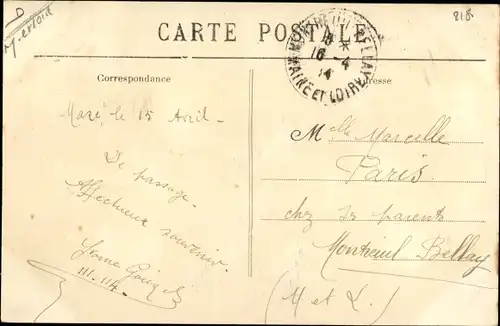 D
818
CARTE POSTALE
MONTREUIL-BELLAY
*
16-4
14
MAINE ET LOIRE
Correspondance
Adresse
le 15 Avril -
De passage -
Affectueux souvenir
III.114.
Melle Marcelle
Paris
chez ses parents
Montreuil Bellay
(M et L.)